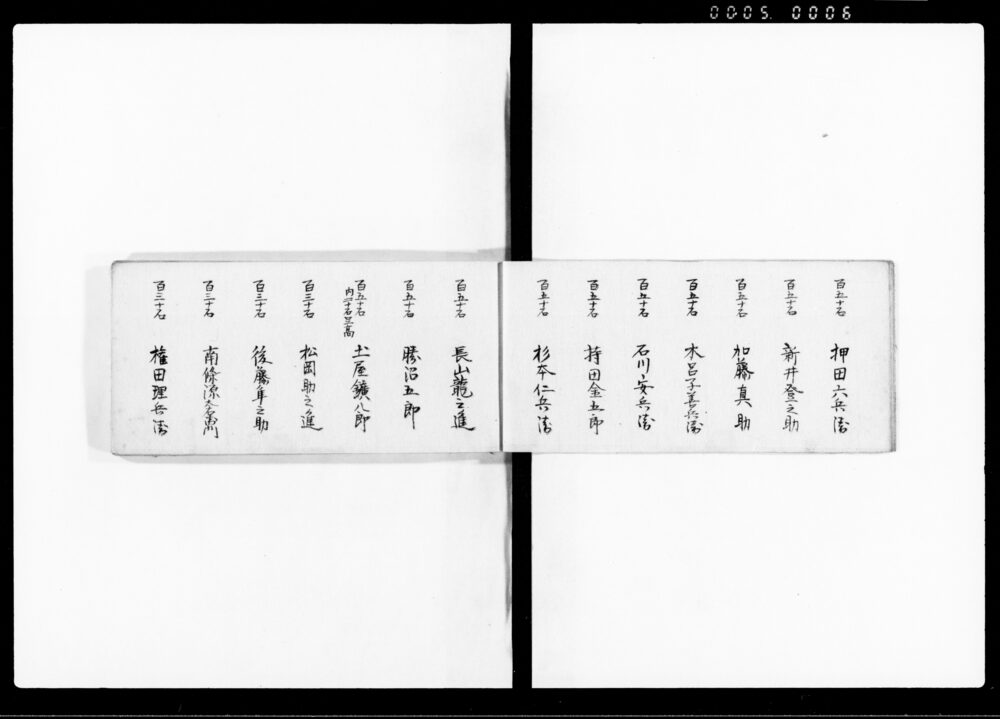 00-05. 0006
百五十石 押田六兵衛
百五十石 新井登之助
百五十石 加藤真助
百五十石 木呂子善兵衛
百五十石 石川安兵衛
百五十石 持田金五郎
百五十石 杉本仁兵衛
百五十石 長山龍之進
百五十石 勝沼五郎
百五十石 内二十石足高 土屋鑛八郎
百三十石 松岡助之進
百三十石 後藤年之助
百三十石 南條源右衛門
百三十石 権田理兵衛